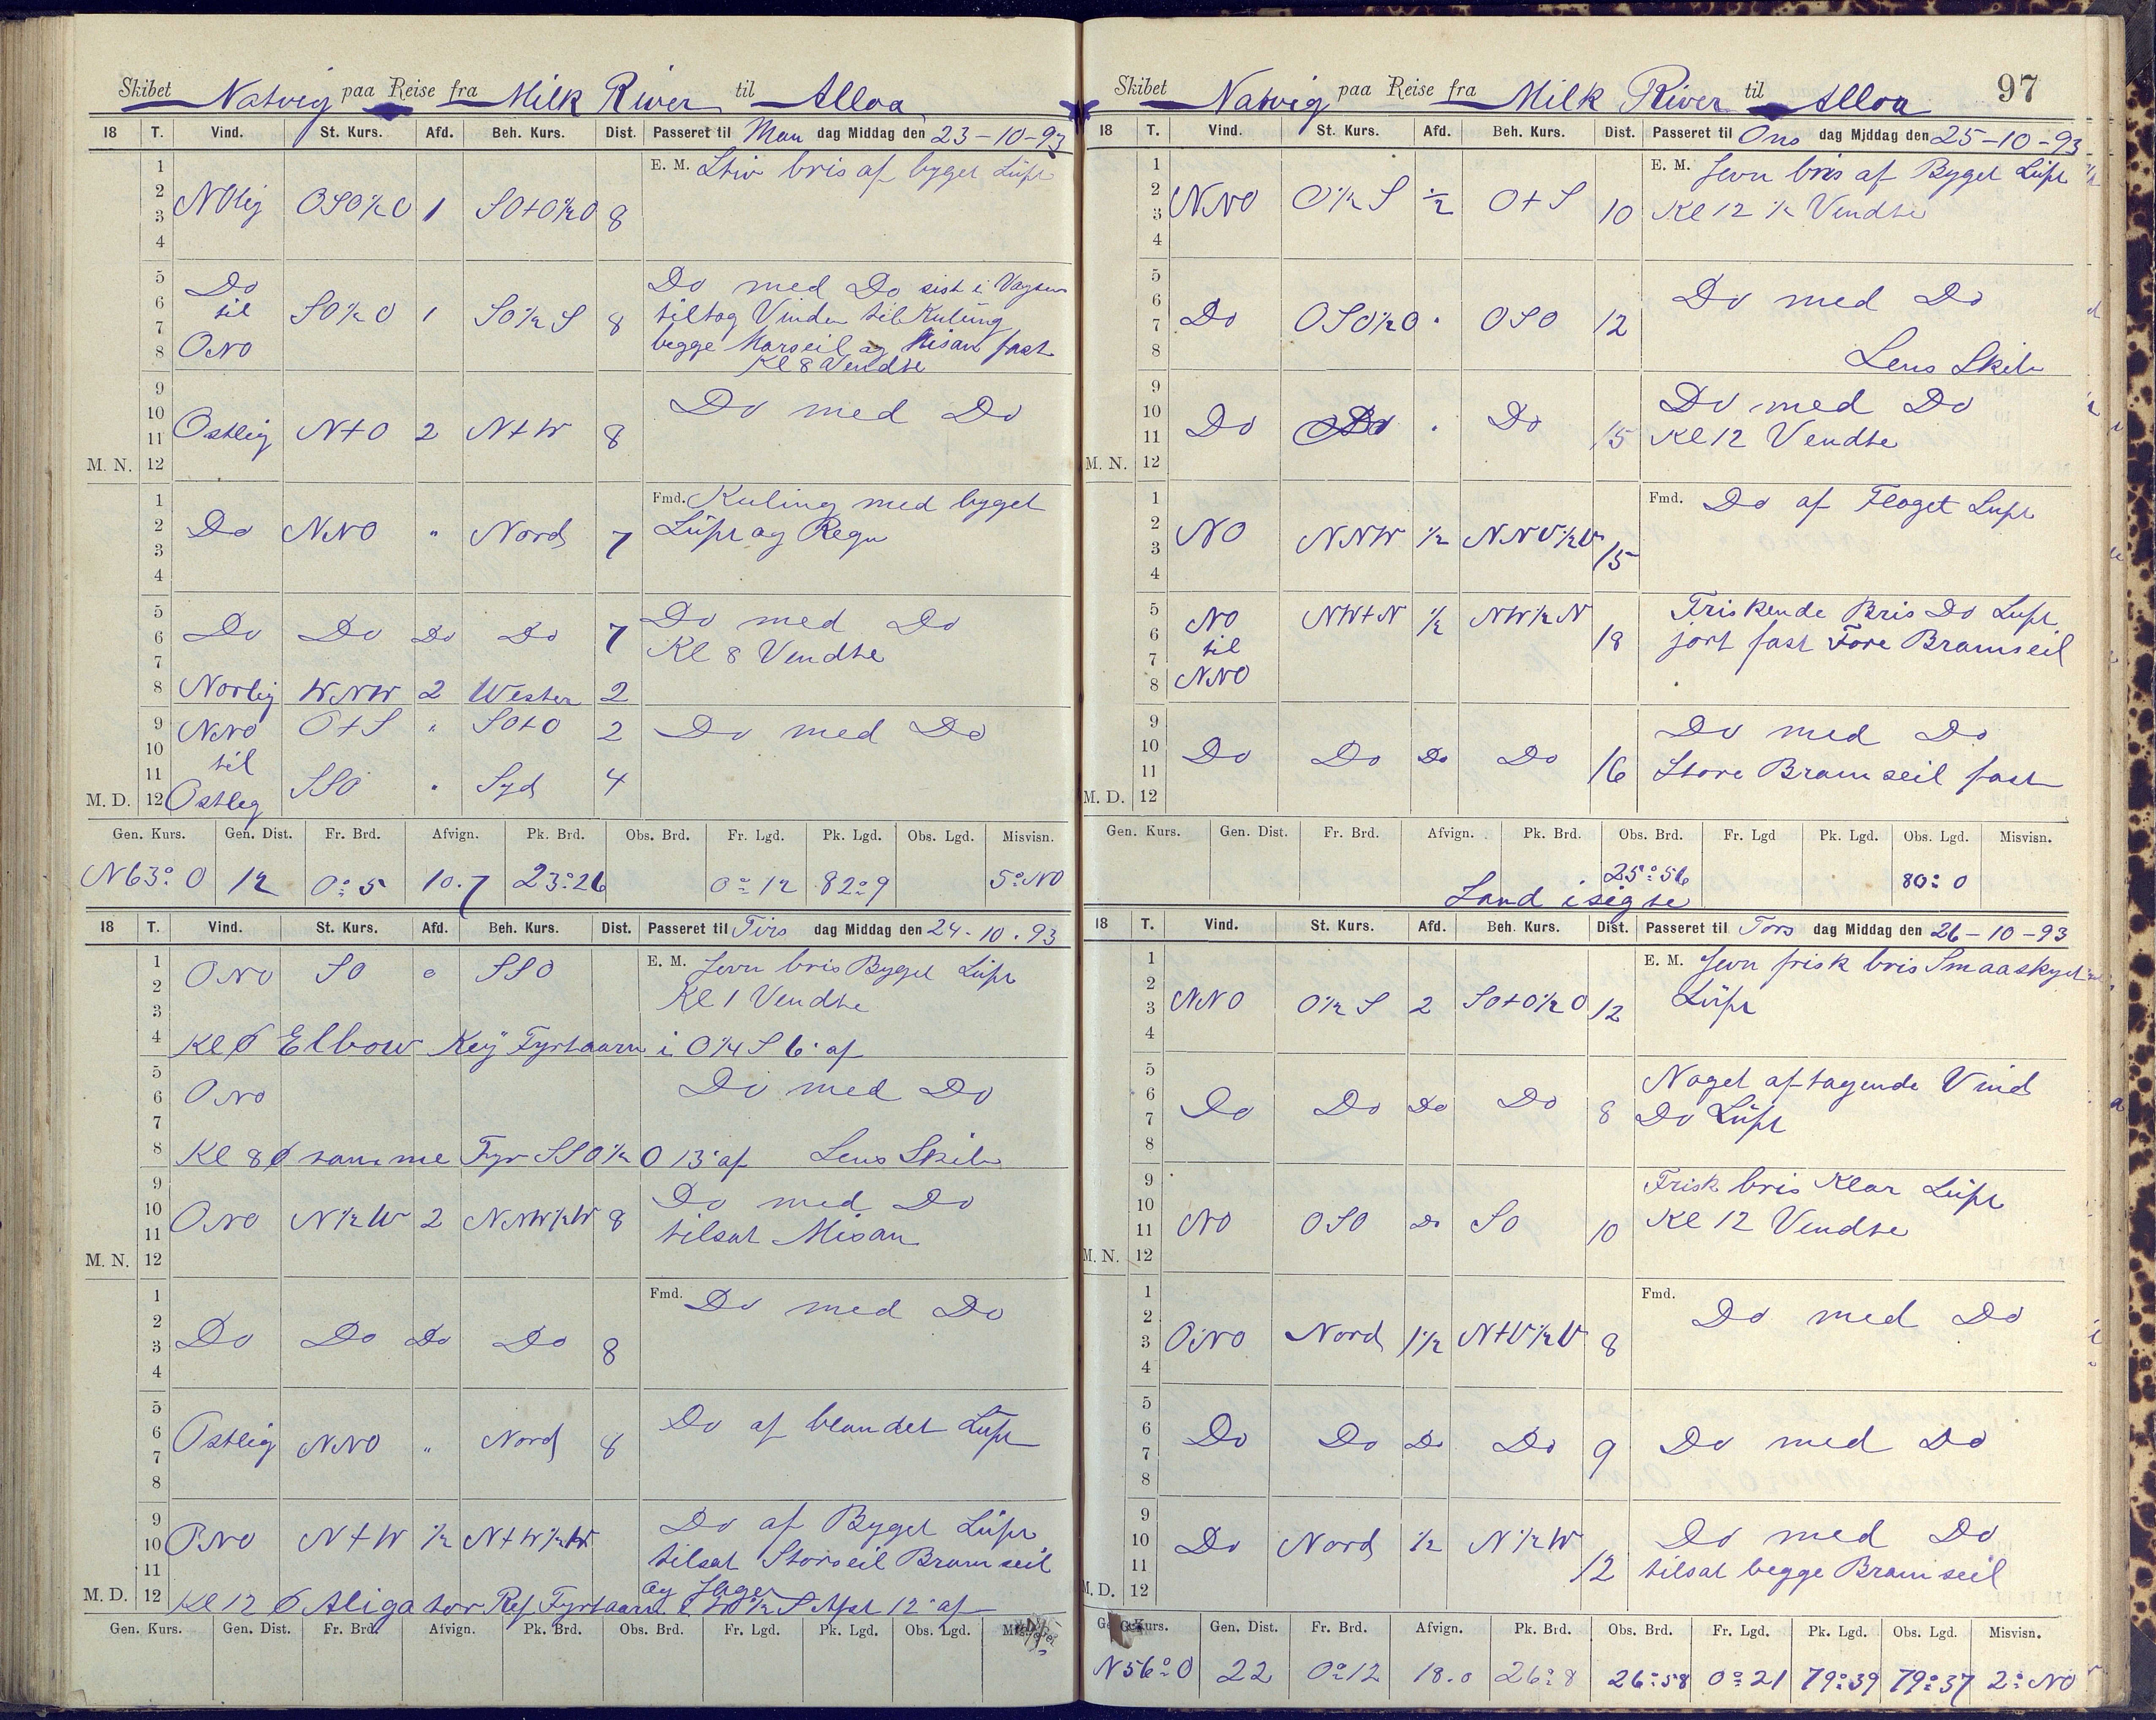 Skibet Natvig paa Reise fra Milk River til Alloa
18 T. Vind. St. Kurs. Afd. Beh. Kurs. Dist. Passeret til Man dag Middag den 23-10-93
1
2
3
4
NOlig OSO½O 1 SO+O½O 8
E. M. Stiv bris af byget Luft
5
6
7
8
Do til ONO SO½O 1 SO½S 8
Do med Do sist i Vagten
tiltog Vinden til Kuling
begge Marseil og Misan fast
Kl 8 Vendte
9
10
11
M. N. 12
Ostlig N+O 2 N+W 8
Do med Do
1
2
3
4
Do NNO " Nord 7
Fmd. Kuling med byget
Luft og Regn
5
6
7
Do Do Do Do 7
Do med Do
Kl 8 Vendte
8 Norlig WNW 2 Westen 2
9
10
NNO O+S " SO+O 2 Do med Do
til
11
M. D. 12
Ostleg SSO " Syd 4
Gen. Kurs. Gen. Dist. Fr. Brd. Afvign. Pk. Brd. Obs. Brd. Fr. Lgd. Pk. Lgd. Obs. Lgd. Misvisn.
N63°O 12 0°5 10.7 23°26 0°12 82°9 5°NO
18 T. Vind. St. Kurs. Afd. Beh. Kurs. Dist. Passeret til Tirs dag Middag den 24-10.93
1
2
3
ONO SO " SSO
E. M. Jevn bris Byget Luft
Kl 1 Vendte
4 Kl 6 Elbow Key Fyrtaarn i O¼S 6' af
5
6
7
ONO Do med Do
8 Kl 8 samme Fyr SSO½O 13' af Lens Skib
9
10
11
M. N. 12
ONO N½W 2 NNW½W 8
Do med Do
tilsat Misan
1
2
3
4
Do Do Do Do 8
Fmd. Do med Do
5
6
7
8
Ostlig NNO " Nord 8
Do af blandet Luft
9
10
11
ONO N+W ½ N+W½W
Do af Byget Luft
tilsat Storseil Bramseil
og Jager
M. D. 12 Kl 12 Aligator Ref Fyrtaarn 12' af
Gen. Kurs. Gen. Dist. Fr. Brd. Afvign. Pk. Brd. Obs. Brd. Fr. Lgd. Pk. Lgd. Obs. Lgd.
Skibet Natvig paa Reise fra Milk River til Alloa 97
18 T. Vind. St. Kurs. Afd. Beh. Kurs. Dist. Passeret til Ons dag Middag den 25-10-93
1
2
3
4
NNO O½S ½ O+S 10
E. M. Jevn bris af Byget Luft
Kl 12½ Vendte
5
6
7
8
Do OSO½O " OSO 12
Do med Do
Lens Skib
9
10
11
M. N. 12
Do Do " Do 15
Do med Do
Kl 12 Vendte
1
2
3
4
NO NNW ½ NNV½V 15
Fmd. Do af Floget Luft
5
6
7
8
NO til NNO NW+N ½ NW½N 18
Friskende Bris Do Luft
jort fast Fore Bramseil
9
10
11
M. D. 12
Do Do Do Do 16
Do med Do
Store Bramseil fast
Gen. Kurs. Gen. Dist. Fr. Brd. Afvign. Pk. Brd. Obs. Brd. Fr. Lgd Pk. Lgd. Obs. Lgd. Misvisn.
25°56 80°0
Land i sigte
18 T. Vind. St. Kurs. Afd. Beh. Kurs. Dist. Passeret til Tors dag Middag den 26-10-93
1
2
3
4
NNO O½S 2 SO+O½O 12
E. M. Jevn frisk bris Smaaskyet
Luft
5
6
7
8
Do Do Do Do 8
Noget aftagende Vind
Do Luft
9
10
11
M. N. 12
NO OSO Do SO 10
Frisk bris Klar Luft
Kl 12 Vendte
1
2
3
4
ONO Nord 1½ N+V½V 8
Fmd. Do med Do
5
6
7
8
Do Do Do Do 9 Do med Do
9
10
11
M. D. 12
Do Nord ½ N½W 12
Do med Do
tilsat begge Bramseil
Gen. Kurs. Gen. Dist. Fr. Brd. Afvign. Pk. Brd. Obs. Brd. Fr. Lgd. Pk. Lgd. Obs. Lgd. Misvisn.
N56°O 22 0°12 18.0 26°8 26°58 0°21 79°39 79°37 2°NO